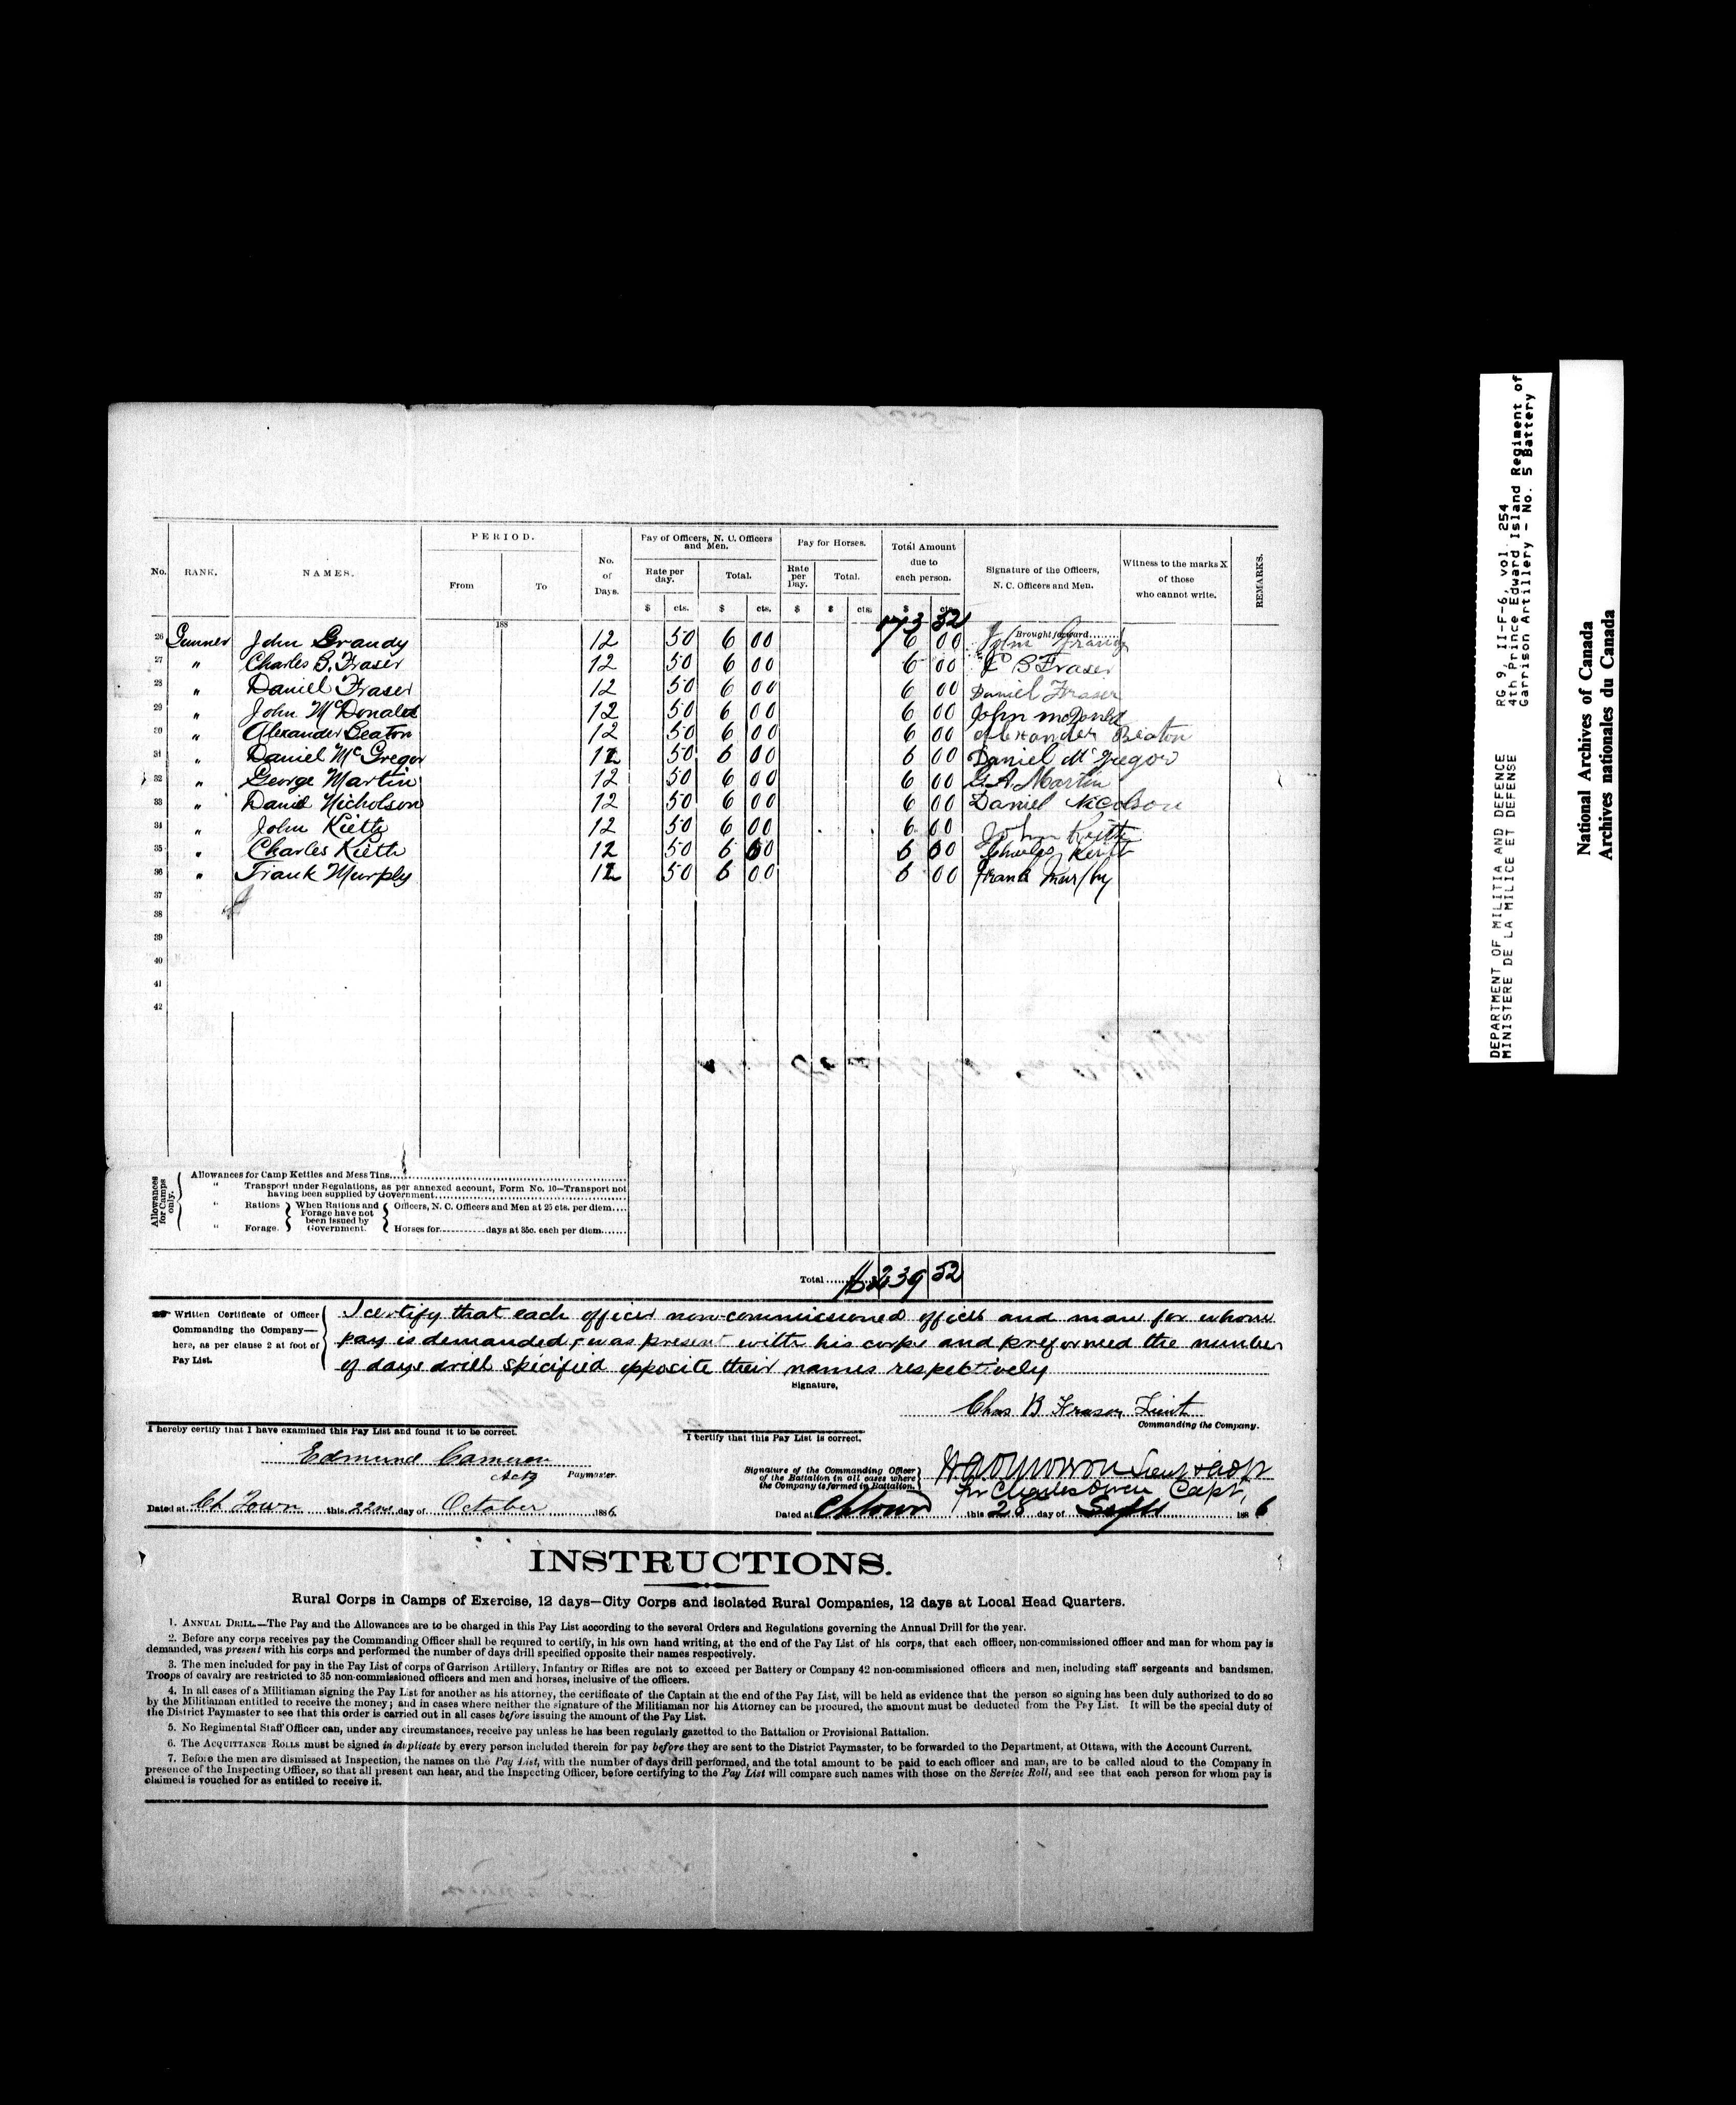 PERIOD.
Pay of Officers, N. C. Officers and Men.
Pay for Horses.
Total Amount due to each person.
No. RANK. NAMES. From To No. of Days. Rate per day. Total. Rate per Day. Total. Signature of the Officers, N. C. Officers and Men. Witness to the marks X of those who cannot write. REMARKS.
$ cts. $ cts. $ $ cts. $ cts.
188 173 52 Brought forward
26 Gunner John Grandy 12 50 6 00 6 00 John Grandy
27 " Charles B. Fraser 12 50 6 00 6 00 C B Fraser
28 " Daniel Fraser 12 50 6 00 6 00 Daniel Fraser
29 " John McDonald 12 50 6 00 6 00 John McDonald
30 " Alexander Beaton 12 50 6 00 6 00 Alexander Beaton
31 " Daniel McGregor 12 50 6 00 6 00 Daniel McGregor
32 " George Martin 12 50 6 00 6 00 G. A Martin
33 " Daniel Nicholson 12 50 6 00 6 00 Daniel Nicolson
34 " John Kieth 12 50 6 00 6 00 John Keith
35 " Charles Kieth 12 50 6 00 6 00 Charles
36 " Frank Murphy 12 50 6 00 6 00 Frank
37
38
39
40
41
42
Allowances for Camps only.
Allowances for Camp Kettles and Mess Tins
" Transport under Regulations, as per annexed account, Form No. 10—Transport not
having been supplied by Government
" Rations } When Rations and Forage have not been issued by Government. { Officers, N. C. Officers and Men at 25 cts. per diem
" Forage. } Horses for days at 35c. each per diem
Total $239 52
Written Certificate of Officer
Commanding the Company—
here, as per clause 2 at foot of
Pay List.
I certify that each officer non-commissioned officer and man for whom
pay is demanded, was present with his corps and preformed the number
of days drill specified opposite their names respectively
Signature,
Chas B Fraser Lieut
Commanding the Company.
I hereby certify that I have examined this Pay List and found it to be correct.
Edmund Cameron
Actg Paymaster.
Dated at Ch Town this 22nd day of October 1886.
I certify that this Pay List is correct.
Signature of the Commanding Officer
of the Battalion in all cases where
the Company is formed in Battalion.
Lieut & Adjt
for Charles Owen Capt,
Dated at Chtown this 28 day of Sept 1886
INSTRUCTIONS.
Rural Corps in Camps of Exercise, 12 days—City Corps and isolated Rural Companies, 12 days at Local Head Quarters.
1. ANNUAL DRILL.—The Pay and the Allowances are to be charged in this Pay List according to the several Orders and Regulations governing the Annual Drill for the year.
2. Before any corps receives pay the Commanding Officer shall be required to certify, in his own hand writing, at the end of the Pay List of his corps, that each officer, non-commissioned officer and man for whom pay is
demanded, was present with his corps and performed the number of days drill specified opposite their names respectively.
3. The men included for pay in the Pay List of corps of Garrison Artillery, Infantry or Rifles are not to exceed per Battery or Company 42 non-commissioned officers and men, including staff sergeants and bandsmen.
Troops of cavalry are restricted to 35 non-commissioned officers and men and horses, inclusive of the officers.
4. In all cases of a Militiaman signing the Pay List for another as his attorney, the certificate of the Captain at the end of the Pay List, will be held as evidence that the person so signing has been duly authorized to do so
by the Militiaman entitled to receive the money; and in cases where neither the signature of the Militiaman nor his Attorney can be procured, the amount must be deducted from the Pay List. It will be the special duty of
the District Paymaster to see that this order is carried out in all cases before issuing the amount of the Pay List.
5. No Regimental Staff Officer can, under any circumstances, receive pay unless he has been regularly gazetted to the Battalion or Provisional Battalion.
6. The ACQUITTANCE ROLLS must be signed in duplicate by every person included therein for pay before they are sent to the District Paymaster, to be forwarded to the Department, at Ottawa, with the Account Current.
7. Before the men are dismissed at Inspection, the names on the Pay List, with the number of days drill performed, and the total amount to be paid to each officer and man, are to be called aloud to the Company in
presence of the Inspecting Officer, so that all present can hear, and the Inspecting Officer, before certifying to the Pay List will compare such names with those on the Service Roll, and see that each person for whom pay is
claimed is vouched for as entitled to receive it.
DEPARTMENT OF MILITIA AND DEFENCE
MINISTERE DE LA MILICE ET DEFENSE
RG 9, II-F-6, vol. 254
4th Prince Edward Island Regiment of
Garrison Artillery - No. 5 Battery
National Archives of Canada
Archives nationales du Canada